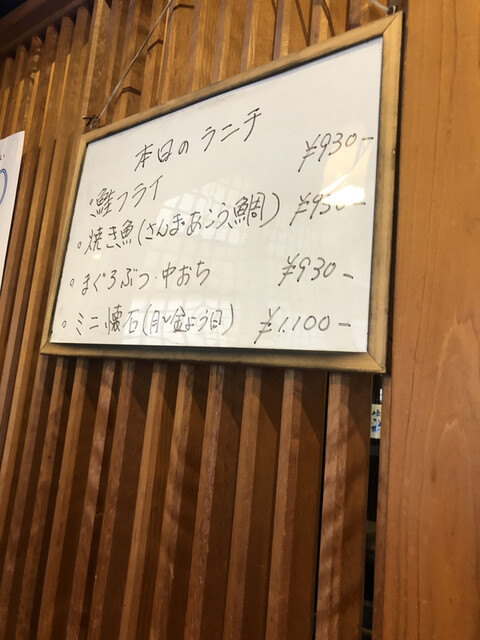 本日の ランチ
鮭フライ ¥930-
。焼き魚(さんま・あこう鯛) ¥930-
。まぐろぶつ・中おち ¥930-
。ミニ懐石(月〜金よう日) ¥1,100-